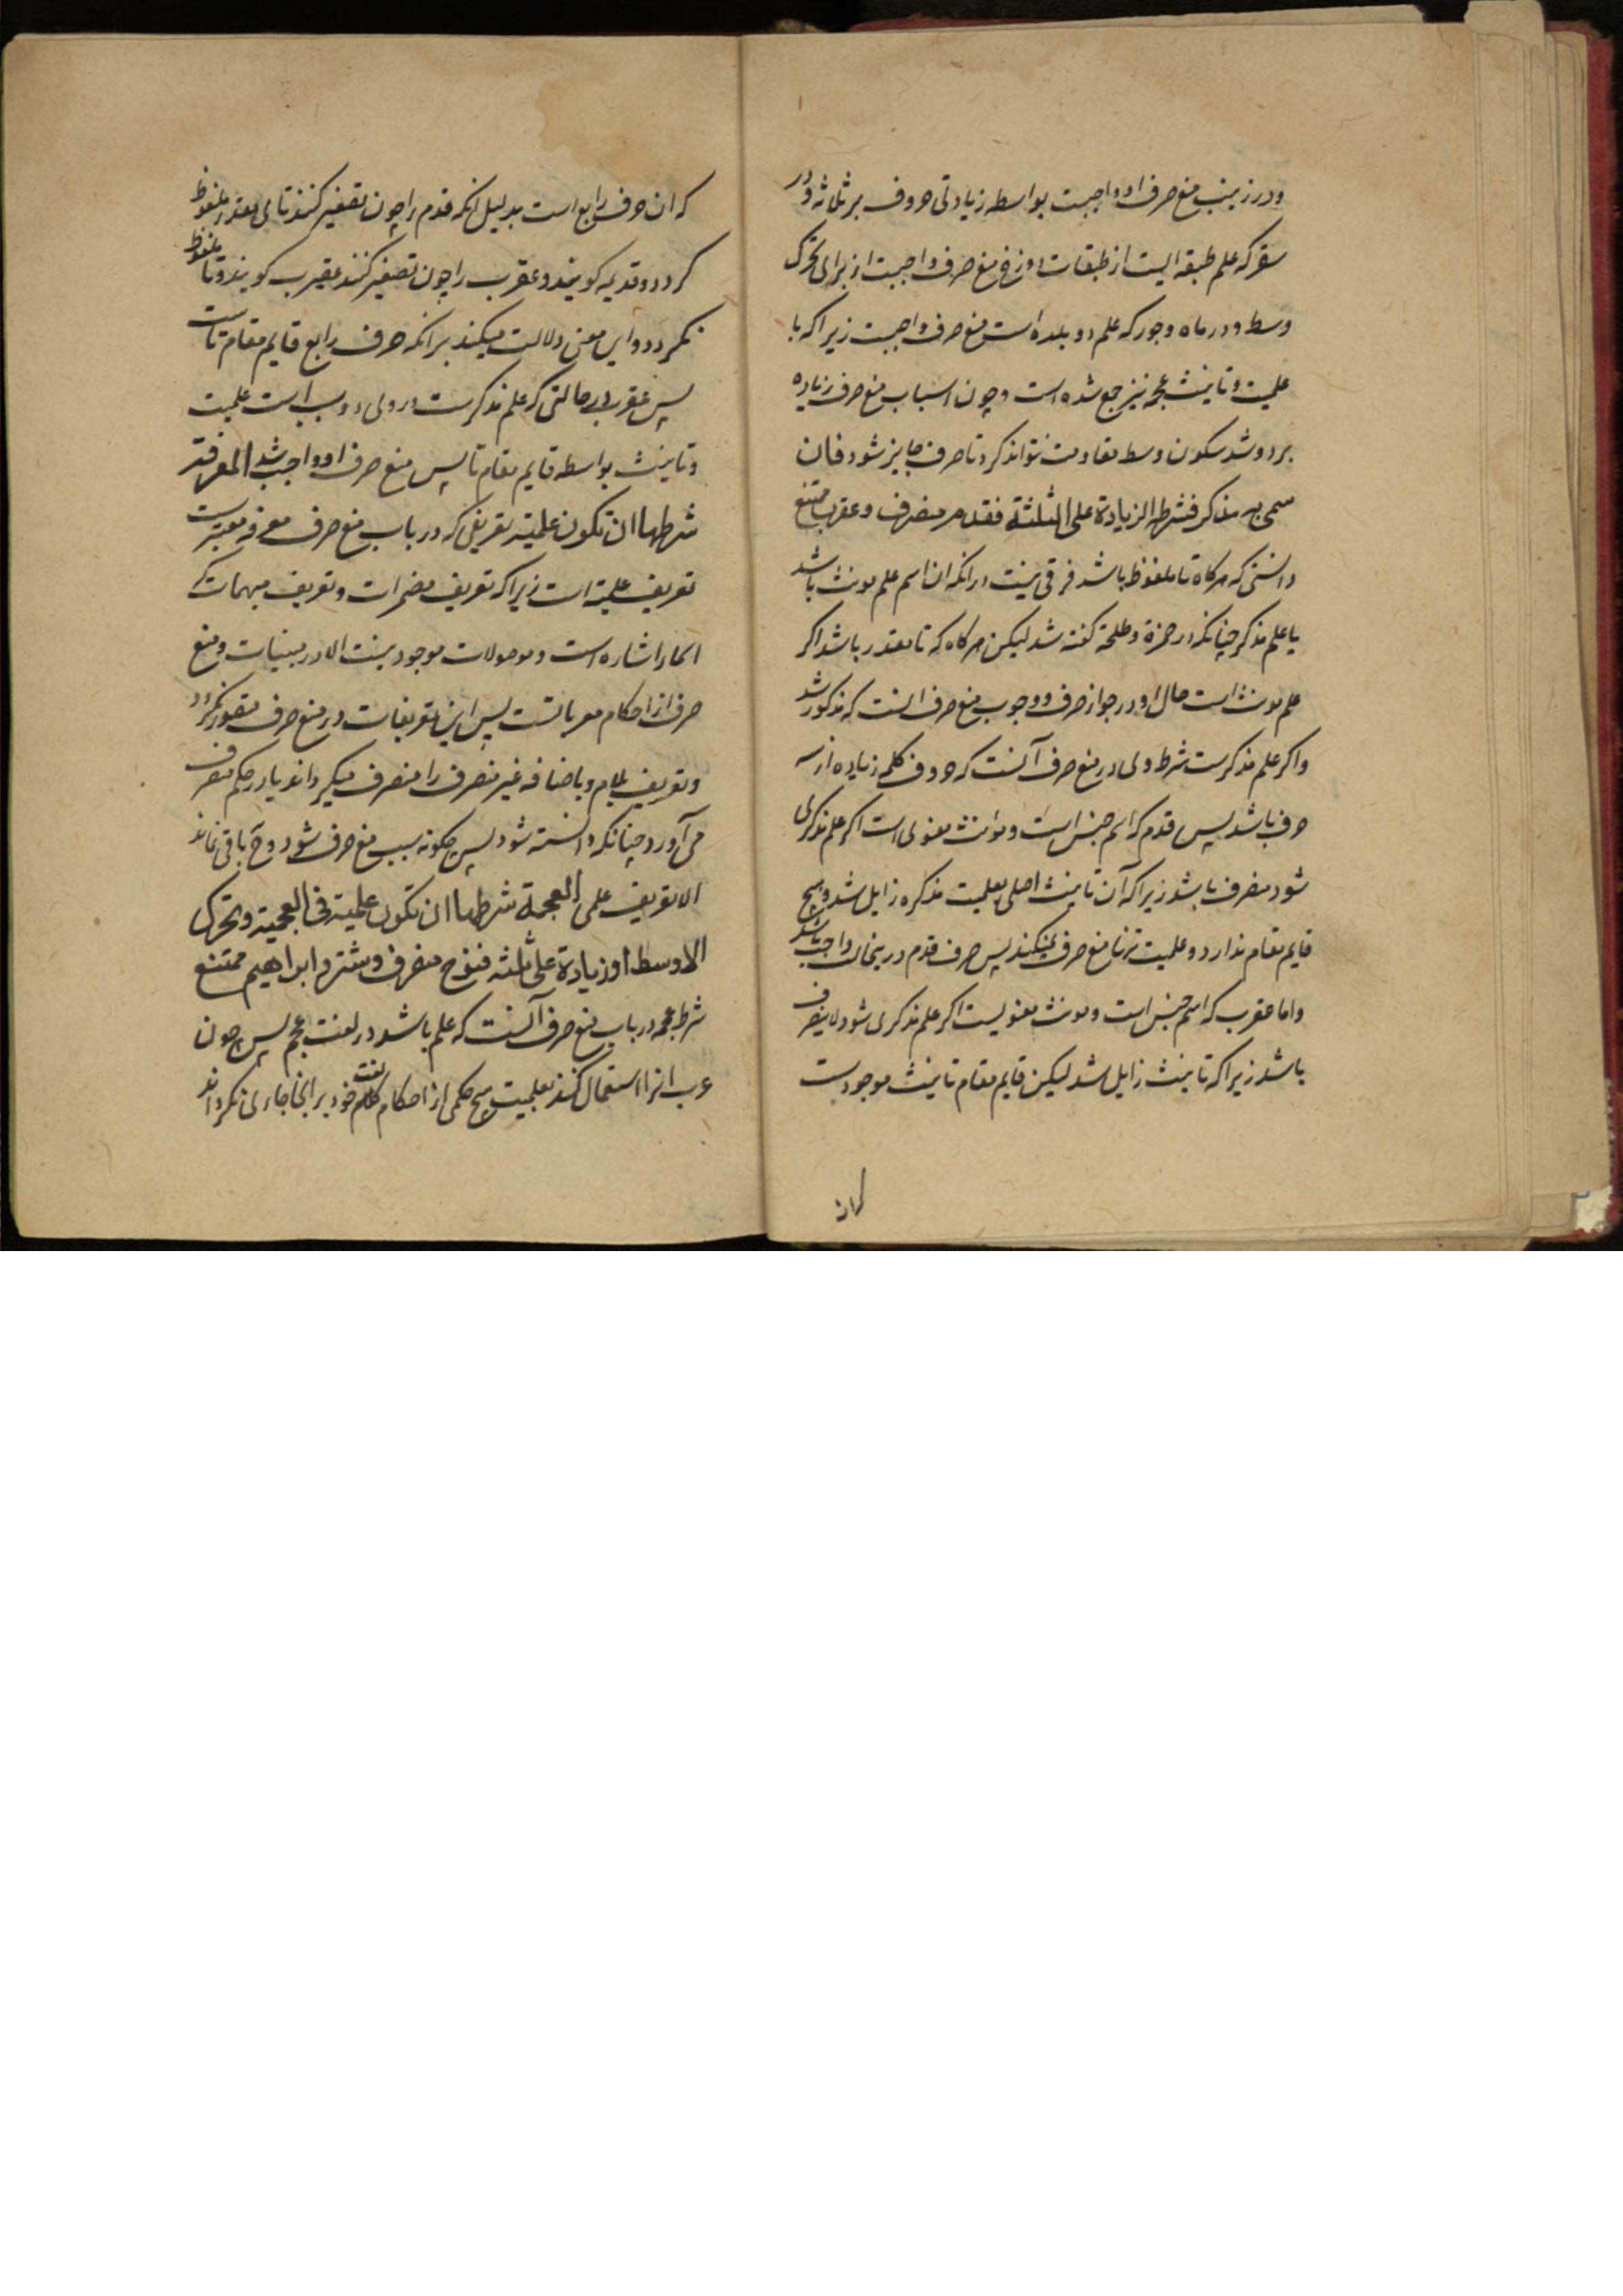 ودر زینب منع صرف او واجبست بواسطه زیادتی حروف بر ثلاثه و در
سقر که علم طبقه ایست از طبقات دوزخ منع صرف واجبست از برای تحرک
وسط و در ماه وجور که علم دو بلده است منع صرف واجبست زیرا که با
علمیت و تانیث عجمه نیز جمع شده است و چون اسباب منع صرف زیاده
بر دو شد سکون وسط مقاومت نتواند کرد تا صرف جایز شود فان
سمی به مذکر فشرطه الزیادة علی الثلثة فقدم منصرف وعقرب ممتنع
دانستی که هرگاه تا ملفوظ باشد فرقی نیست در انکه ان اسم علم مونث باشد
یا علم مذکر چنانکه در حمزة وطلحة گفته شد لیکن هرگاه که تا مقدر باشد اکر
علم مونث است حال او در جواز صرف و وجوب منع صرف انست که مذکور شد
واکر علم مذکرست شرط وی در منع صرف آنست که حروف کلمه زیاده از سه
حرف باشد پس قدم که اسم جنس است ومونث معنوی است اکر علم مذکری
شود منصرف باشد زیرا که آن تانیث اصلی بعلمیت مذکره زایل شد وهیچ
قایم مقام ندارد و علمیت تنها منع صرف نمیکند پس صرف قدم درینحال واجب باشد
واما عقرب که اسم جنس است ومونث معنویست اکر علم مذکری شود لا ینصرف
باشد زیرا که تانیث زایل شد لیکن قایم مقام تانیث موجودست
که ان حرف رابع است بدلیل انکه قدم را چون تصغیر کنند تای مقدر ملفوظ
کردد وقدیمه کویند وعقرب را چون تصغیر کنند عقیرب کویند وتا ملفوظ
نکردد واین معنی دلالت میکند بر انکه حرف رابع قایم مقام تاست
پس عقرب در حالتی که علم مذکرست در وی دو سبب است علمیت
وتانیث بواسطه قایم مقام تا پس منع صرف او واجب شد المعرفة
شرطها ان تکون علمیة تعریفی که در باب منع صرف معرفه معتبرست
تعریف علمیة است زیرا که تعریف مضمرات وتعریف مبهمات که
اسماء اشاره است وموصولات موجود نیست الا در مبنیات ومنع
صرف از احکام معرباتست پس این تعریفات در منع صرف متصور نکردد
وتعریف بلام وباضافه غیر منصرف را منصرف میکرداند یا در حکم منصرف
می آورد چنانکه دانسته شود پس چکونه سبب منع صرف شود وح باقی نماند
الا تعریف علمی العجمة شرطها ان تکون علمیة فی العجمیة وتحرک
الاوسط او زیادة علی ثلثه فنوح منصرف وشتر وابراهیم ممتنع
شرط عجمه در باب منع صرف آنست که علم باشد در لغت عجم پس چون
عرب انرا استعمال کنند بعلمیت هیچ حکمی از احکام کلام لغت خود بر انجا جاری نکرداند